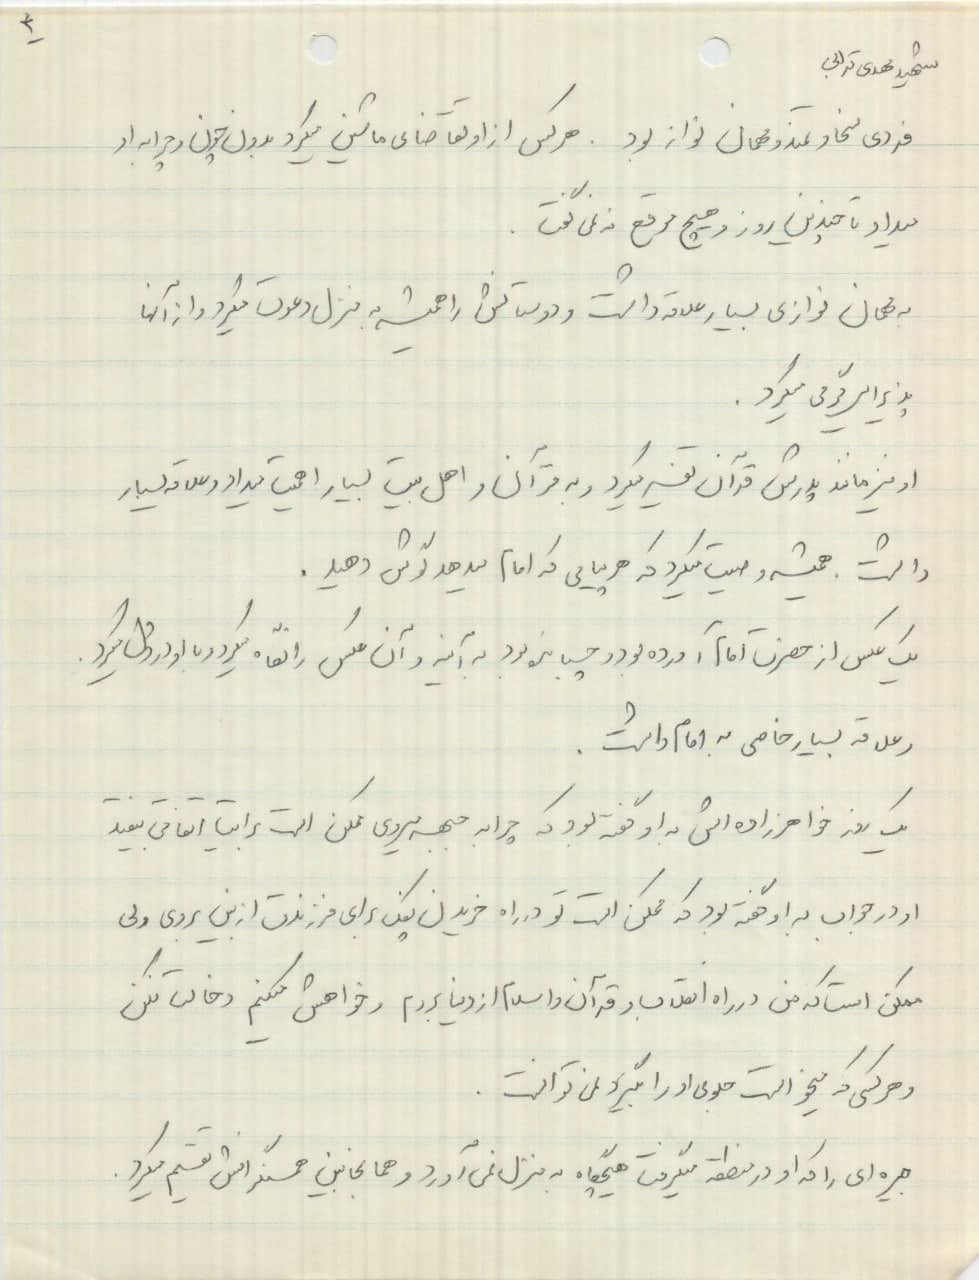 ۳
شهید مهدی ترابی
فردی سخاوتمند و مهمان نواز بود . هر کس از او تقاضای ماشین میکرد بدون چون و چرا به او
میداد تا چندین روز و هیچ موقع نه نمی گفت .
به مهمان نوازی بسیار علاقه داشت و دوستانش را همیشه به منزل دعوت میکرد و از آنها
پذیرایی گرمی میکرد .
او نیز مانند پدرش قرآن تفسیر میکرد و به قرآن و اهل بیت بسیار اهمیت میداد و علاقه بسیار
داشت . همیشه وصیت میکرد که هر پیامی که امام میدهد گوش دهید .
یک عکس از حضرت امام آورده بود و چسبانده بود به آینه و آن عکس را نگاه میکرد و با او درددل میکرد .
و علاقه بسیار خاصی به امام داشت .
یک روز خواهرزاده اش به او گفته بود که چرا به جبهه میروی ممکن است برایت اتفاقی بیفتد
او در جواب به او گفته بود که ممکن است تو در راه خریدن پفک برای فرزندت از بین بروی ولی
ممکن است که من در راه انقلاب و قرآن و اسلام از دنیا بروم و خواهش میکنم دخالت نکن
و هر کسی که میخواست جلوی او را بگیرد نمی توانست .
جیره ای را که او در منطقه میگرفت هیچگاه به منزل نمی آورد و همانجا بین همسنگرانش تقسیم میکرد .